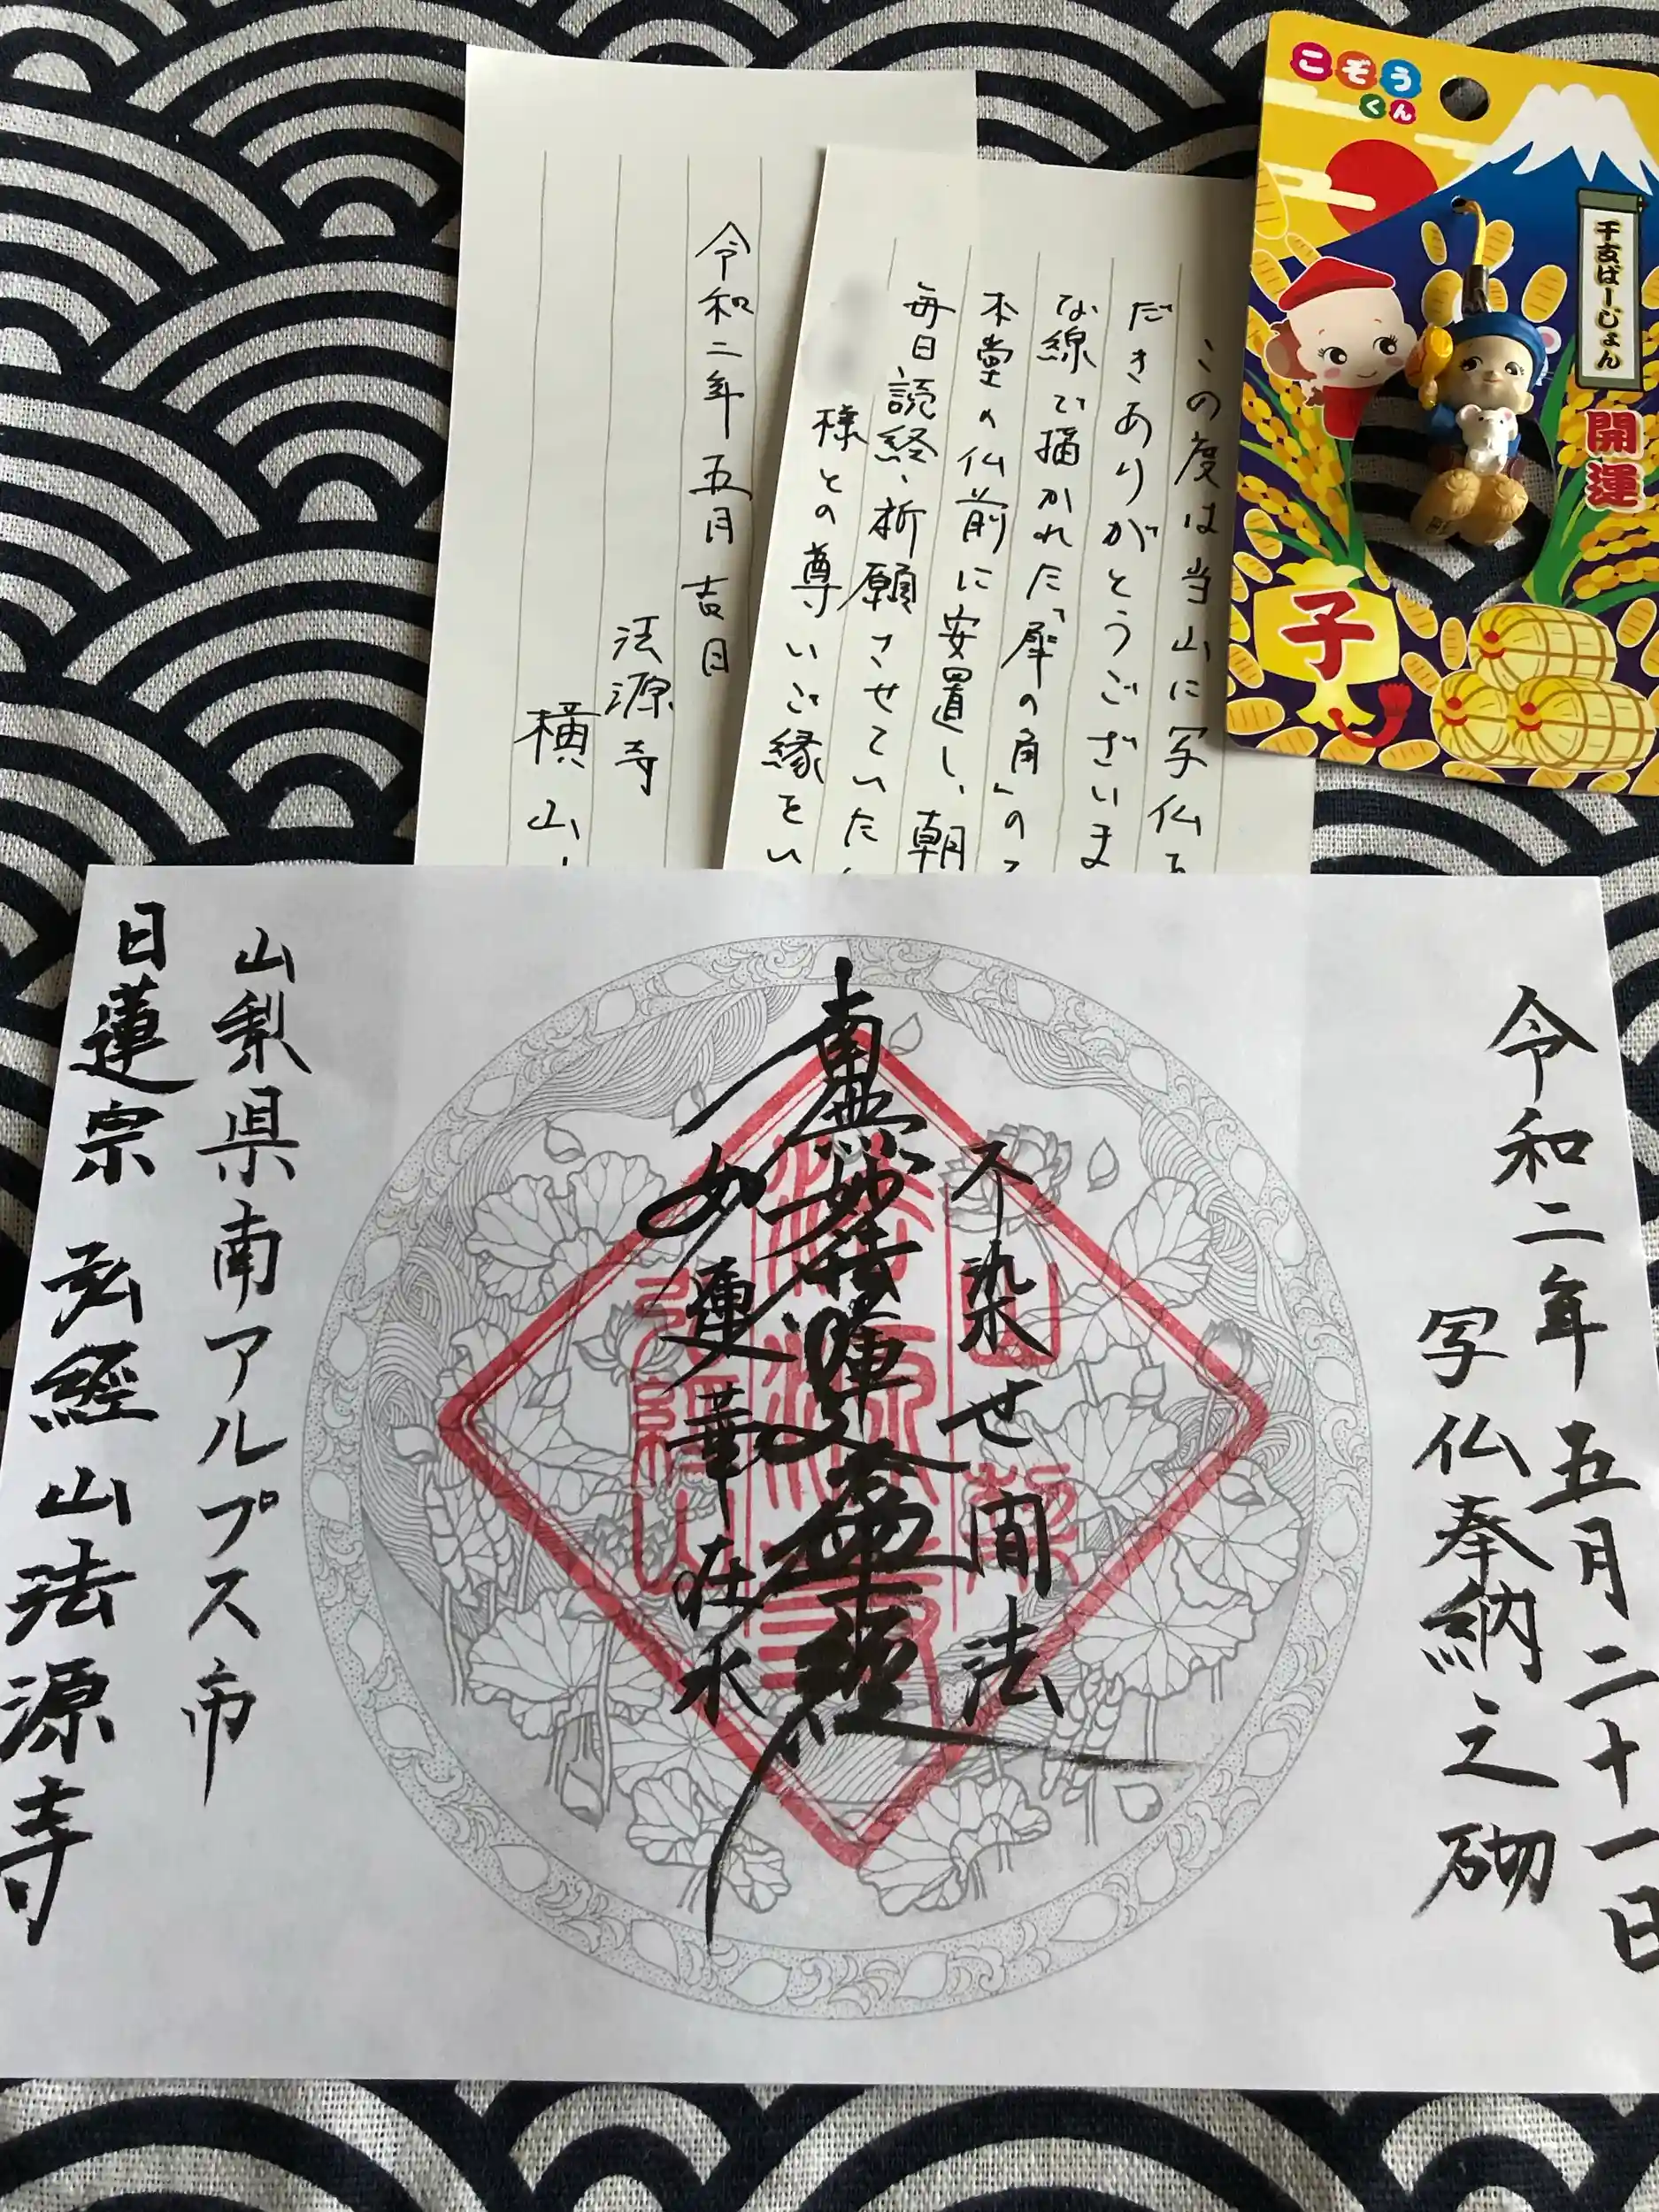 こぞう
くん
干支ばーじょん
開運
子
この度は当山に写仏を
だきありがとうございま
な線で描かれた「犀の角」の
本堂の仏前に安置し、朝
毎日読経、祈願させていた
様との尊いご縁をい
令和二年五月吉日
法源寺
横山
令和二年五月二十一日
写仏奉納之砌
不染世間法
南無妙法蓮華経
如蓮華在水
山梨県南アルプス市
日蓮宗 弘經山法源寺